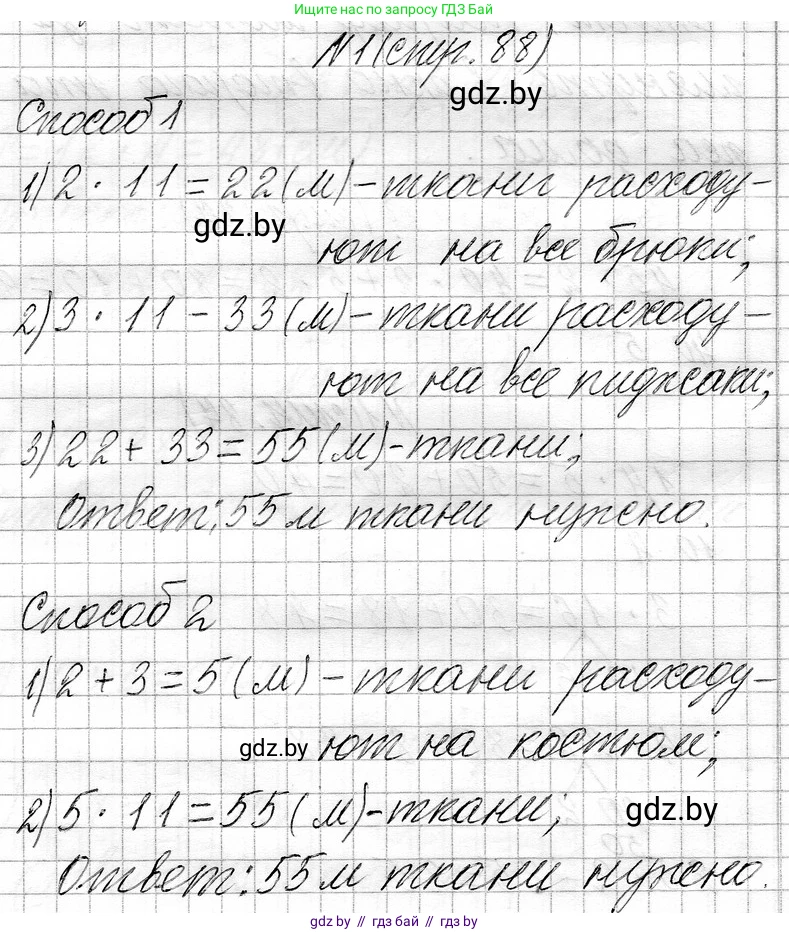 Ищите нас по запросу ГДЗ Бай
№1 (стр. 88)
gdz.by
Способ 1
1) 2 · 11 = 22 (м) - ткани расходу-
gdz.by
ют на все брюки;
2) 3 · 11 - 33 (м) - ткани расходу-
ют на все пиджаки;
3) 22 + 33 = 55 (м) - ткани;
Ответ: 55 м ткани нужно.
Способ 2
1) 2 + 3 = 5 (м) - ткани расходу-
gdz.by ют на костюм;
2) 5 · 11 = 55 (м) - ткани; gdz.by
Ответ: 55 м ткани нужно.
gdz by // гдз бай // gdz by